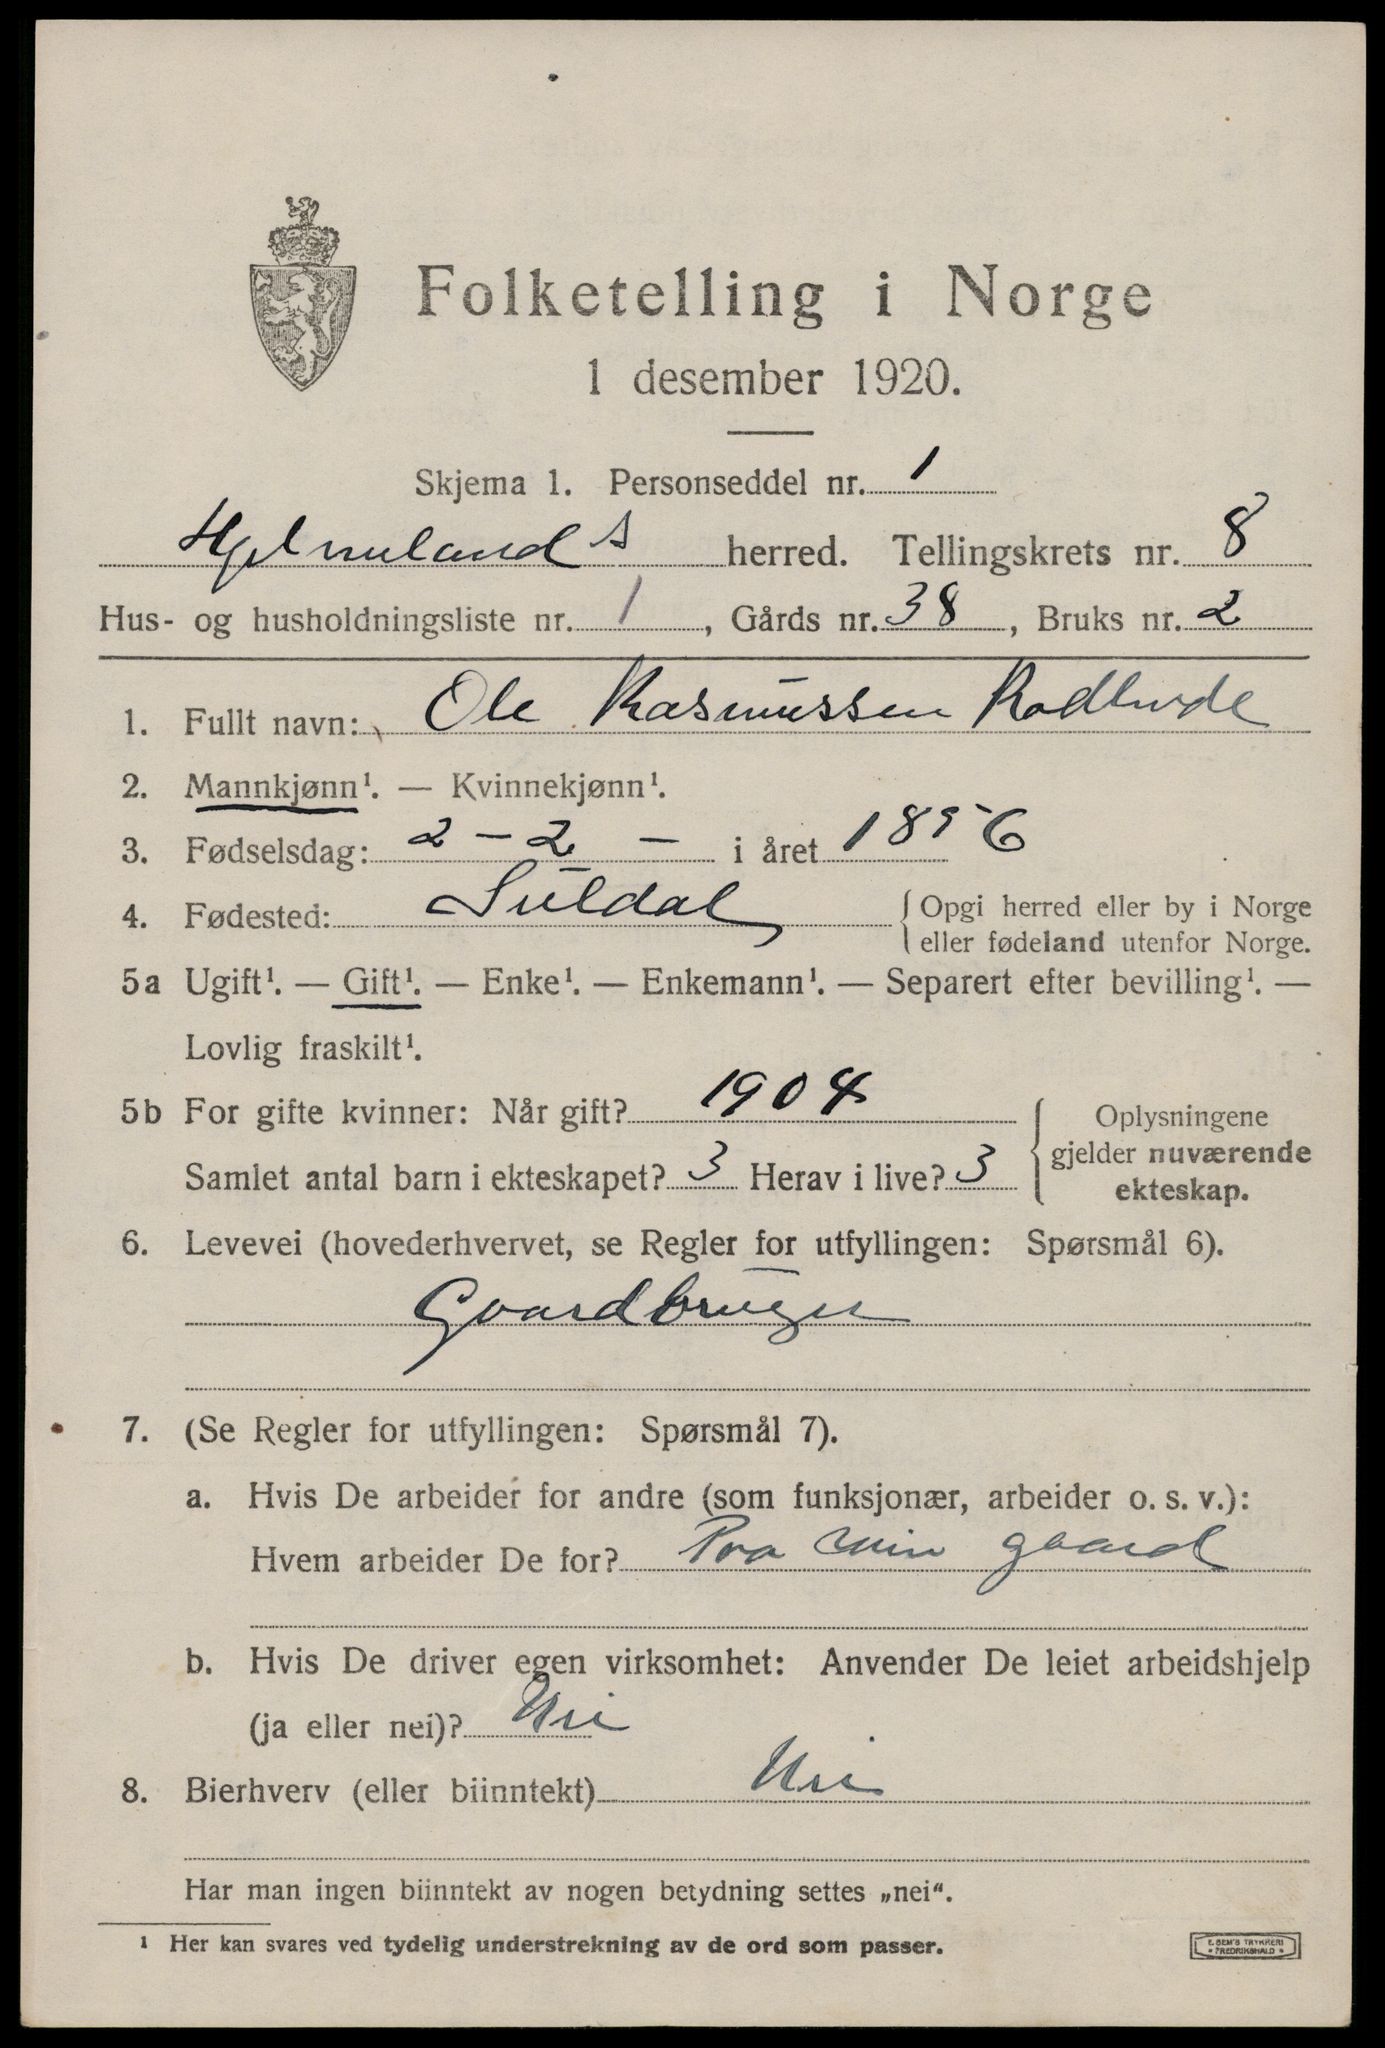 Folketelling i Norge
1 desember 1920.
Skjema 1. Personseddel nr. 1
Hjelmelands herred. Tellingskrets nr. 8
Hus- og husholdningsliste nr. 1, Gårds nr. 38, Bruks nr. 2
1. Fullt navn: Ole Rasmussen
2. Mannkjønn¹. — Kvinnekjønn¹.
3. Fødselsdag: 2 - 2 - i året 1856
4. Fødested: Suldal { Opgi herred eller by i Norge
eller fødeland utenfor Norge.
5a Ugift¹. — Gift¹. — Enke¹. — Enkemann¹. — Separert efter bevilling¹. —
Lovlig fraskilt¹.
5b For gifte kvinner: Når gift? 1904
Samlet antal barn i ekteskapet? 3 Herav i live? 3
{ Oplysningene
gjelder nuværende
ekteskap.
6. Levevei (hovederhvervet, se Regler for utfyllingen: Spørsmål 6).
Gaardbruger
7. (Se Regler for utfyllingen: Spørsmål 7).
a. Hvis De arbeider for andre (som funksjonær, arbeider o. s. v.):
Hvem arbeider De for? Paa min gaard
b. Hvis De driver egen virksomhet: Anvender De leiet arbeidshjelp
(ja eller nei)? Nei
8. Bierhverv (eller biinntekt) Nei
Har man ingen biinntekt av nogen betydning settes „nei“.
¹ Her kan svares ved tydelig understrekning av de ord som passer.
E. SEM'S TRYKKERI
• FREDRIKSHALD •